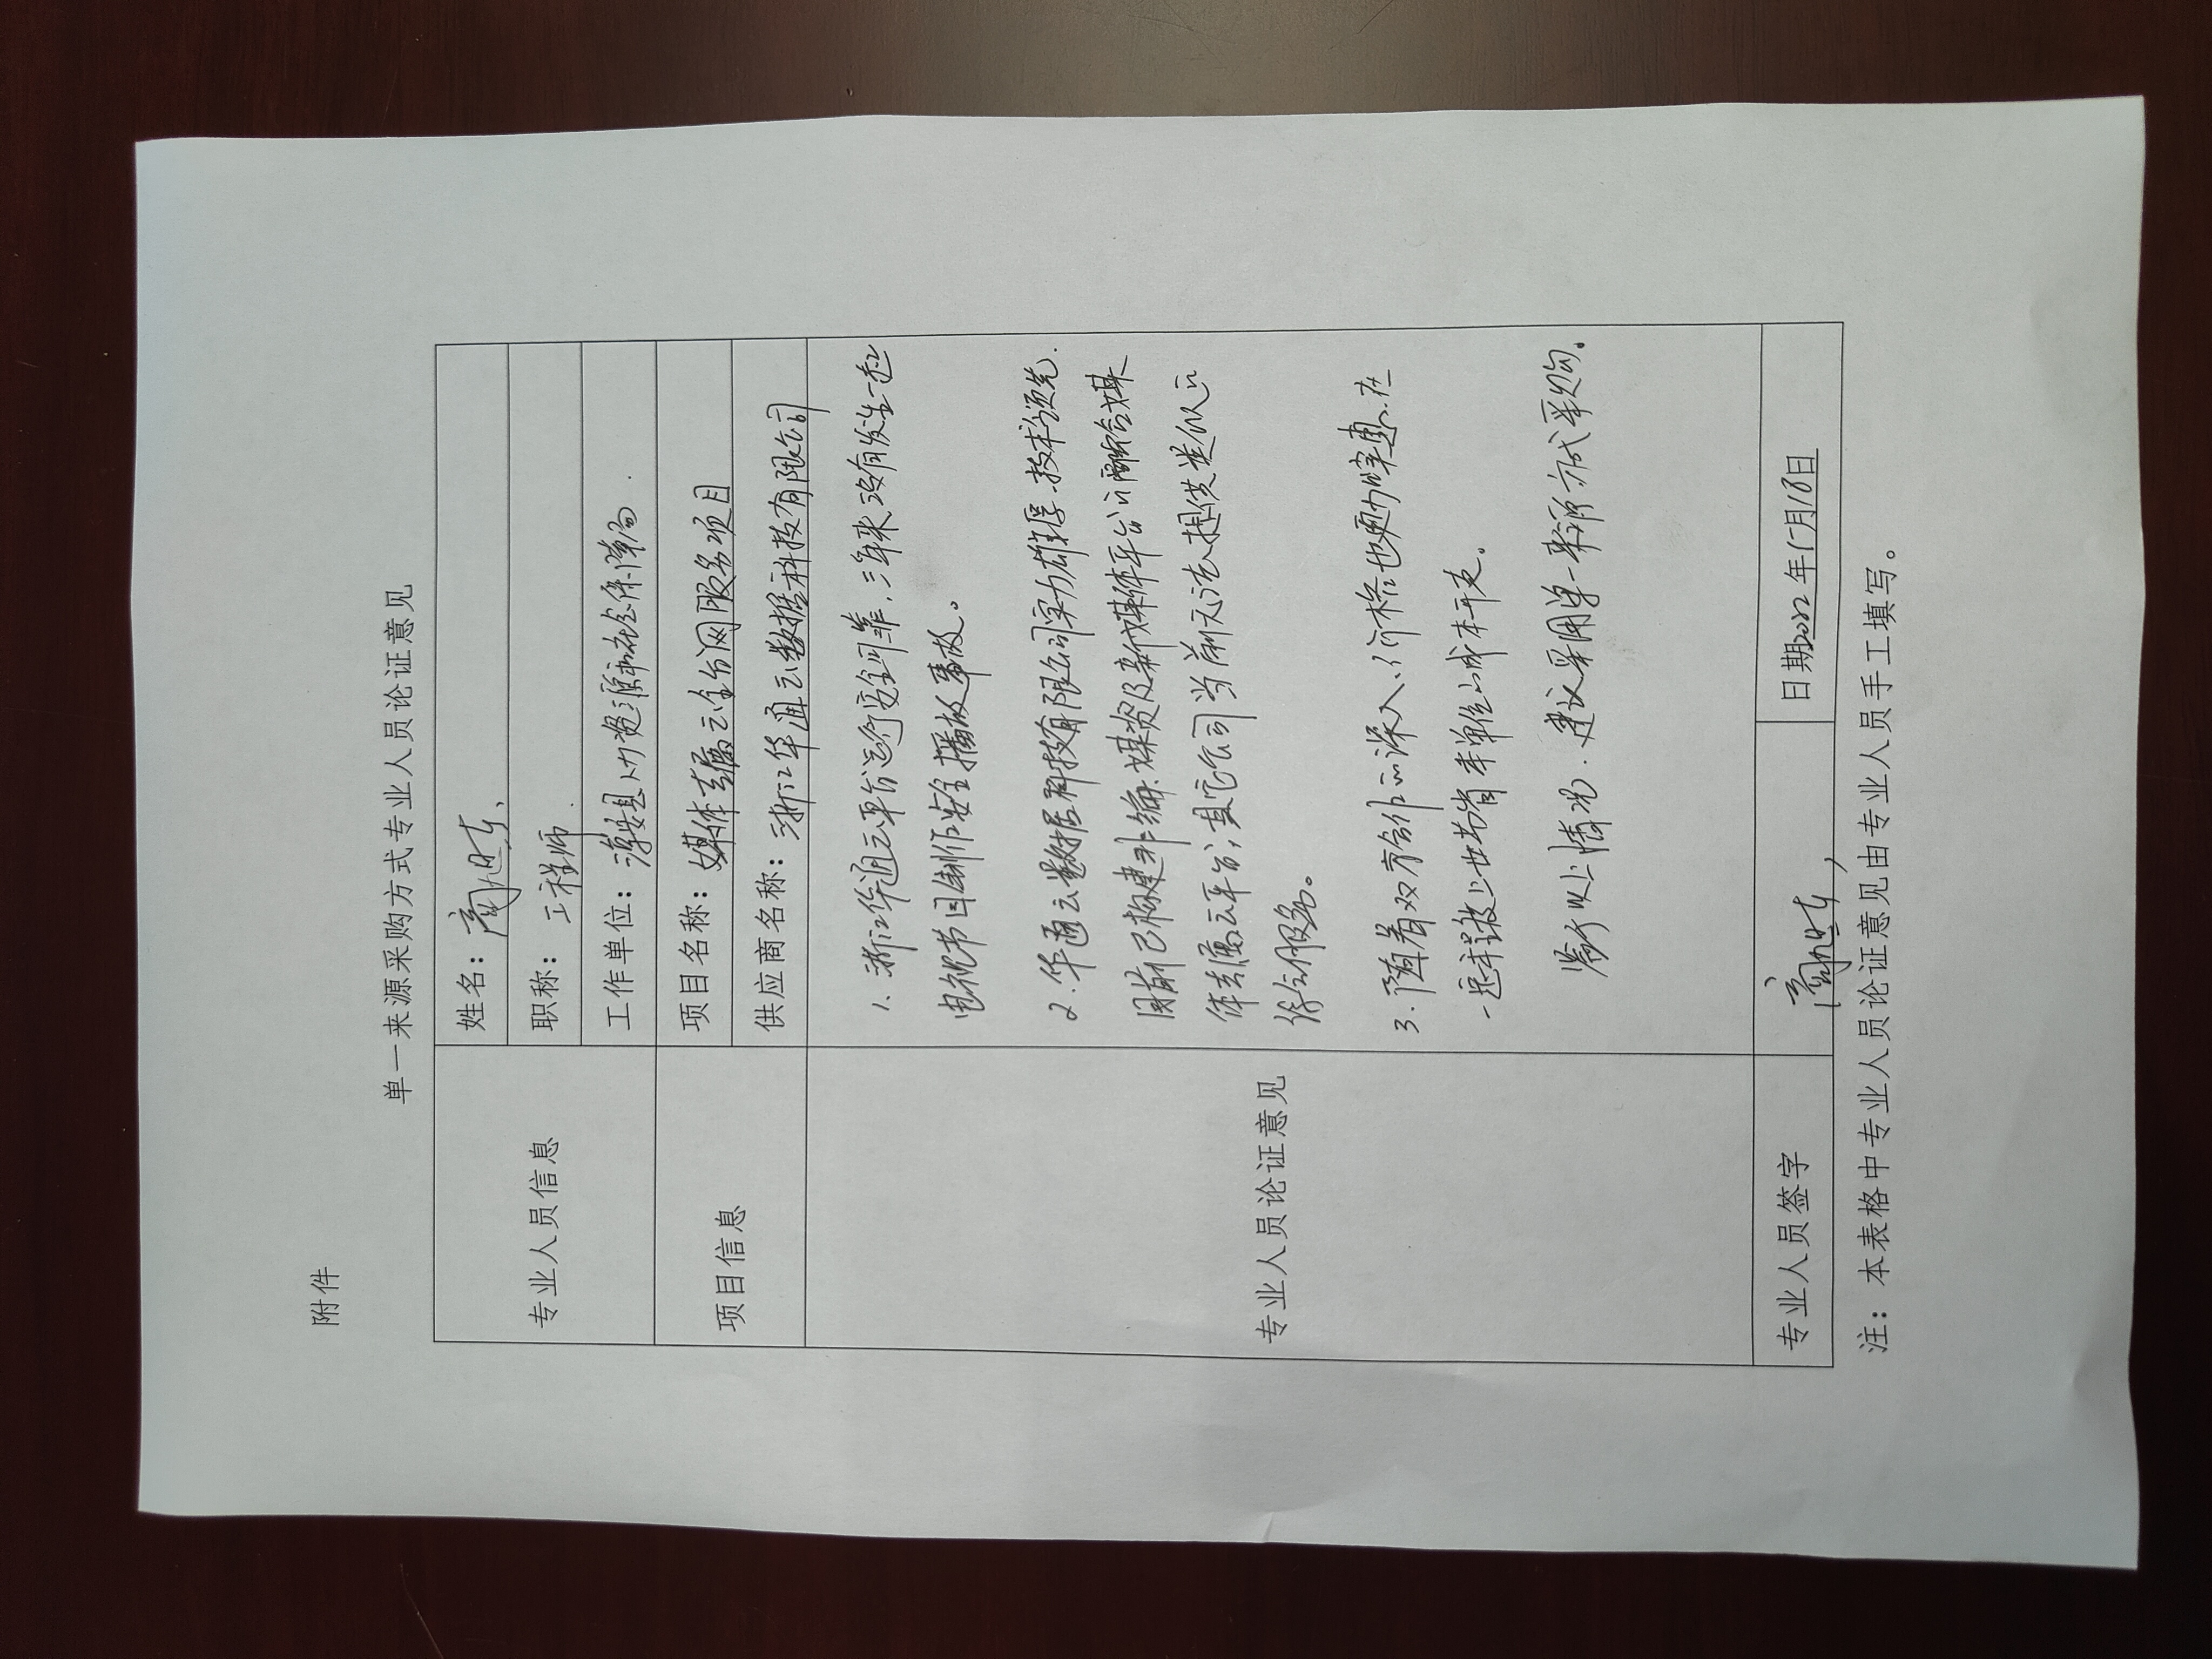 附件
单一来源采购方式专业人员论证意见
专业人员信息
姓名：
职称：工程师
工作单位：淳安县人力资源和社会保障局
项目信息
项目名称：媒体专属云全台网服务项目
供应商名称：浙江华通云数据科技有限公司
专业人员论证意见
1.浙江华通云平台运行安全可靠，三年来没有发生一起
电视节目制作安全播放事故。
2.华通云数据科技有限公司实力雄厚、技术领先.
目前已构建非编、媒资及新媒体平台的融合媒
体专属云平台，其它公司当前无法提供类似的
综合服务。
3.随着双方合作的深入、价格也更加实惠.在
一定程度上节省本单位的成本开支。
鉴于以上情况.建议采用单一来源方式采购。
专业人员签字
日期2022年1月18日
注：本表格中专业人员论证意见由专业人员手工填写。